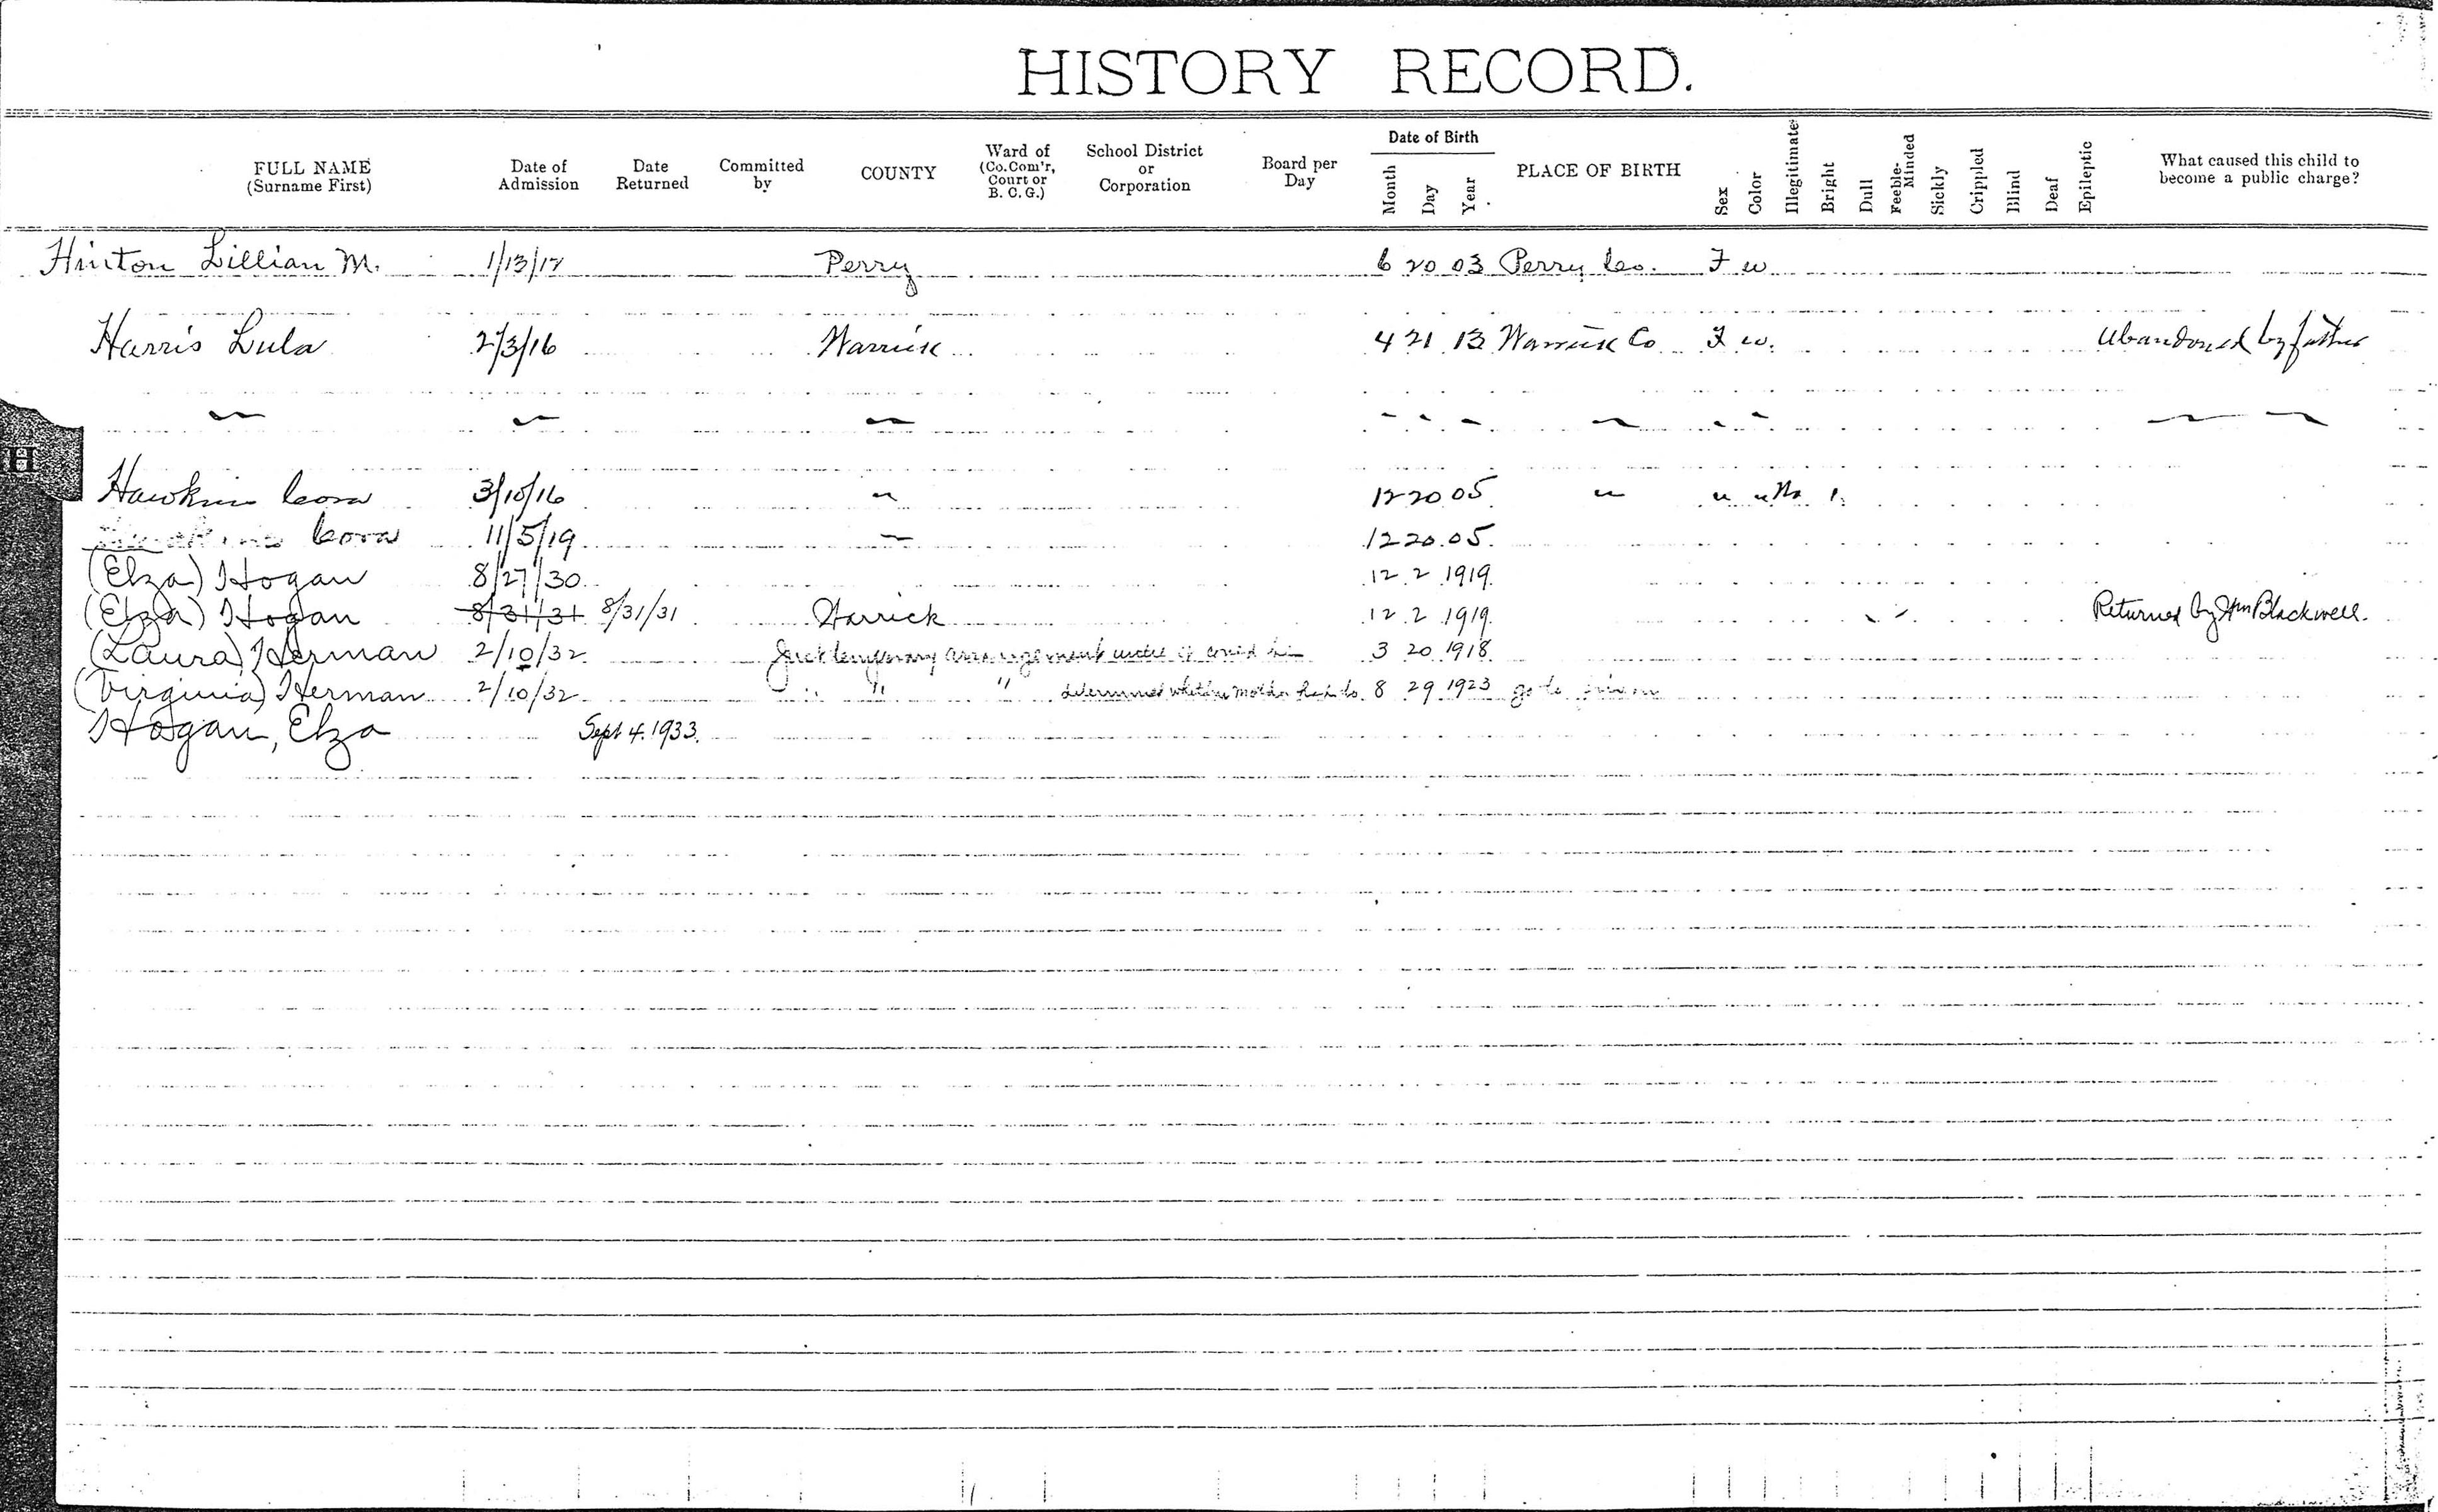 HISTORY RECORD.
FULL NAME (Surname First) Date of Admission Date Returned Committed by COUNTY Ward of (Co.Com'r, Court or B. C. G.) School District or Corporation Board per Day Date of Birth Month Day Year PLACE OF BIRTH Sex Color Illegitimate Bright Dull Feeble-Minded Sickly Crippled Blind Deaf Epileptic What caused this child to become a public charge?
Hinton Lillian M. 1/13/17 Perry 6 20 03 Perry Co. F w
Harris Lula 2/3/16 Warrick 4 21 13 Warrick Co F w. Abandoned by father
H
Hawkins Cora 3/10/16 " 12 20 05 " " " No 1
Cora 11/5/19 " 12 20 05
(Elza) Hogan 8/27/30 12 2 1919
(Elza) Hogan 8/31/31 8/31/31 Warrick 12 2 1919 Returned by Wm Blackwell.
(Laura) Herman 2/10/32 Just temporary arrangement until it could be 3 20 1918
(Virginia) Herman 2/10/32 " " " determined whether mother had to 8 29 1923 go to prison
Hogan, Elza Sept 4. 1933.